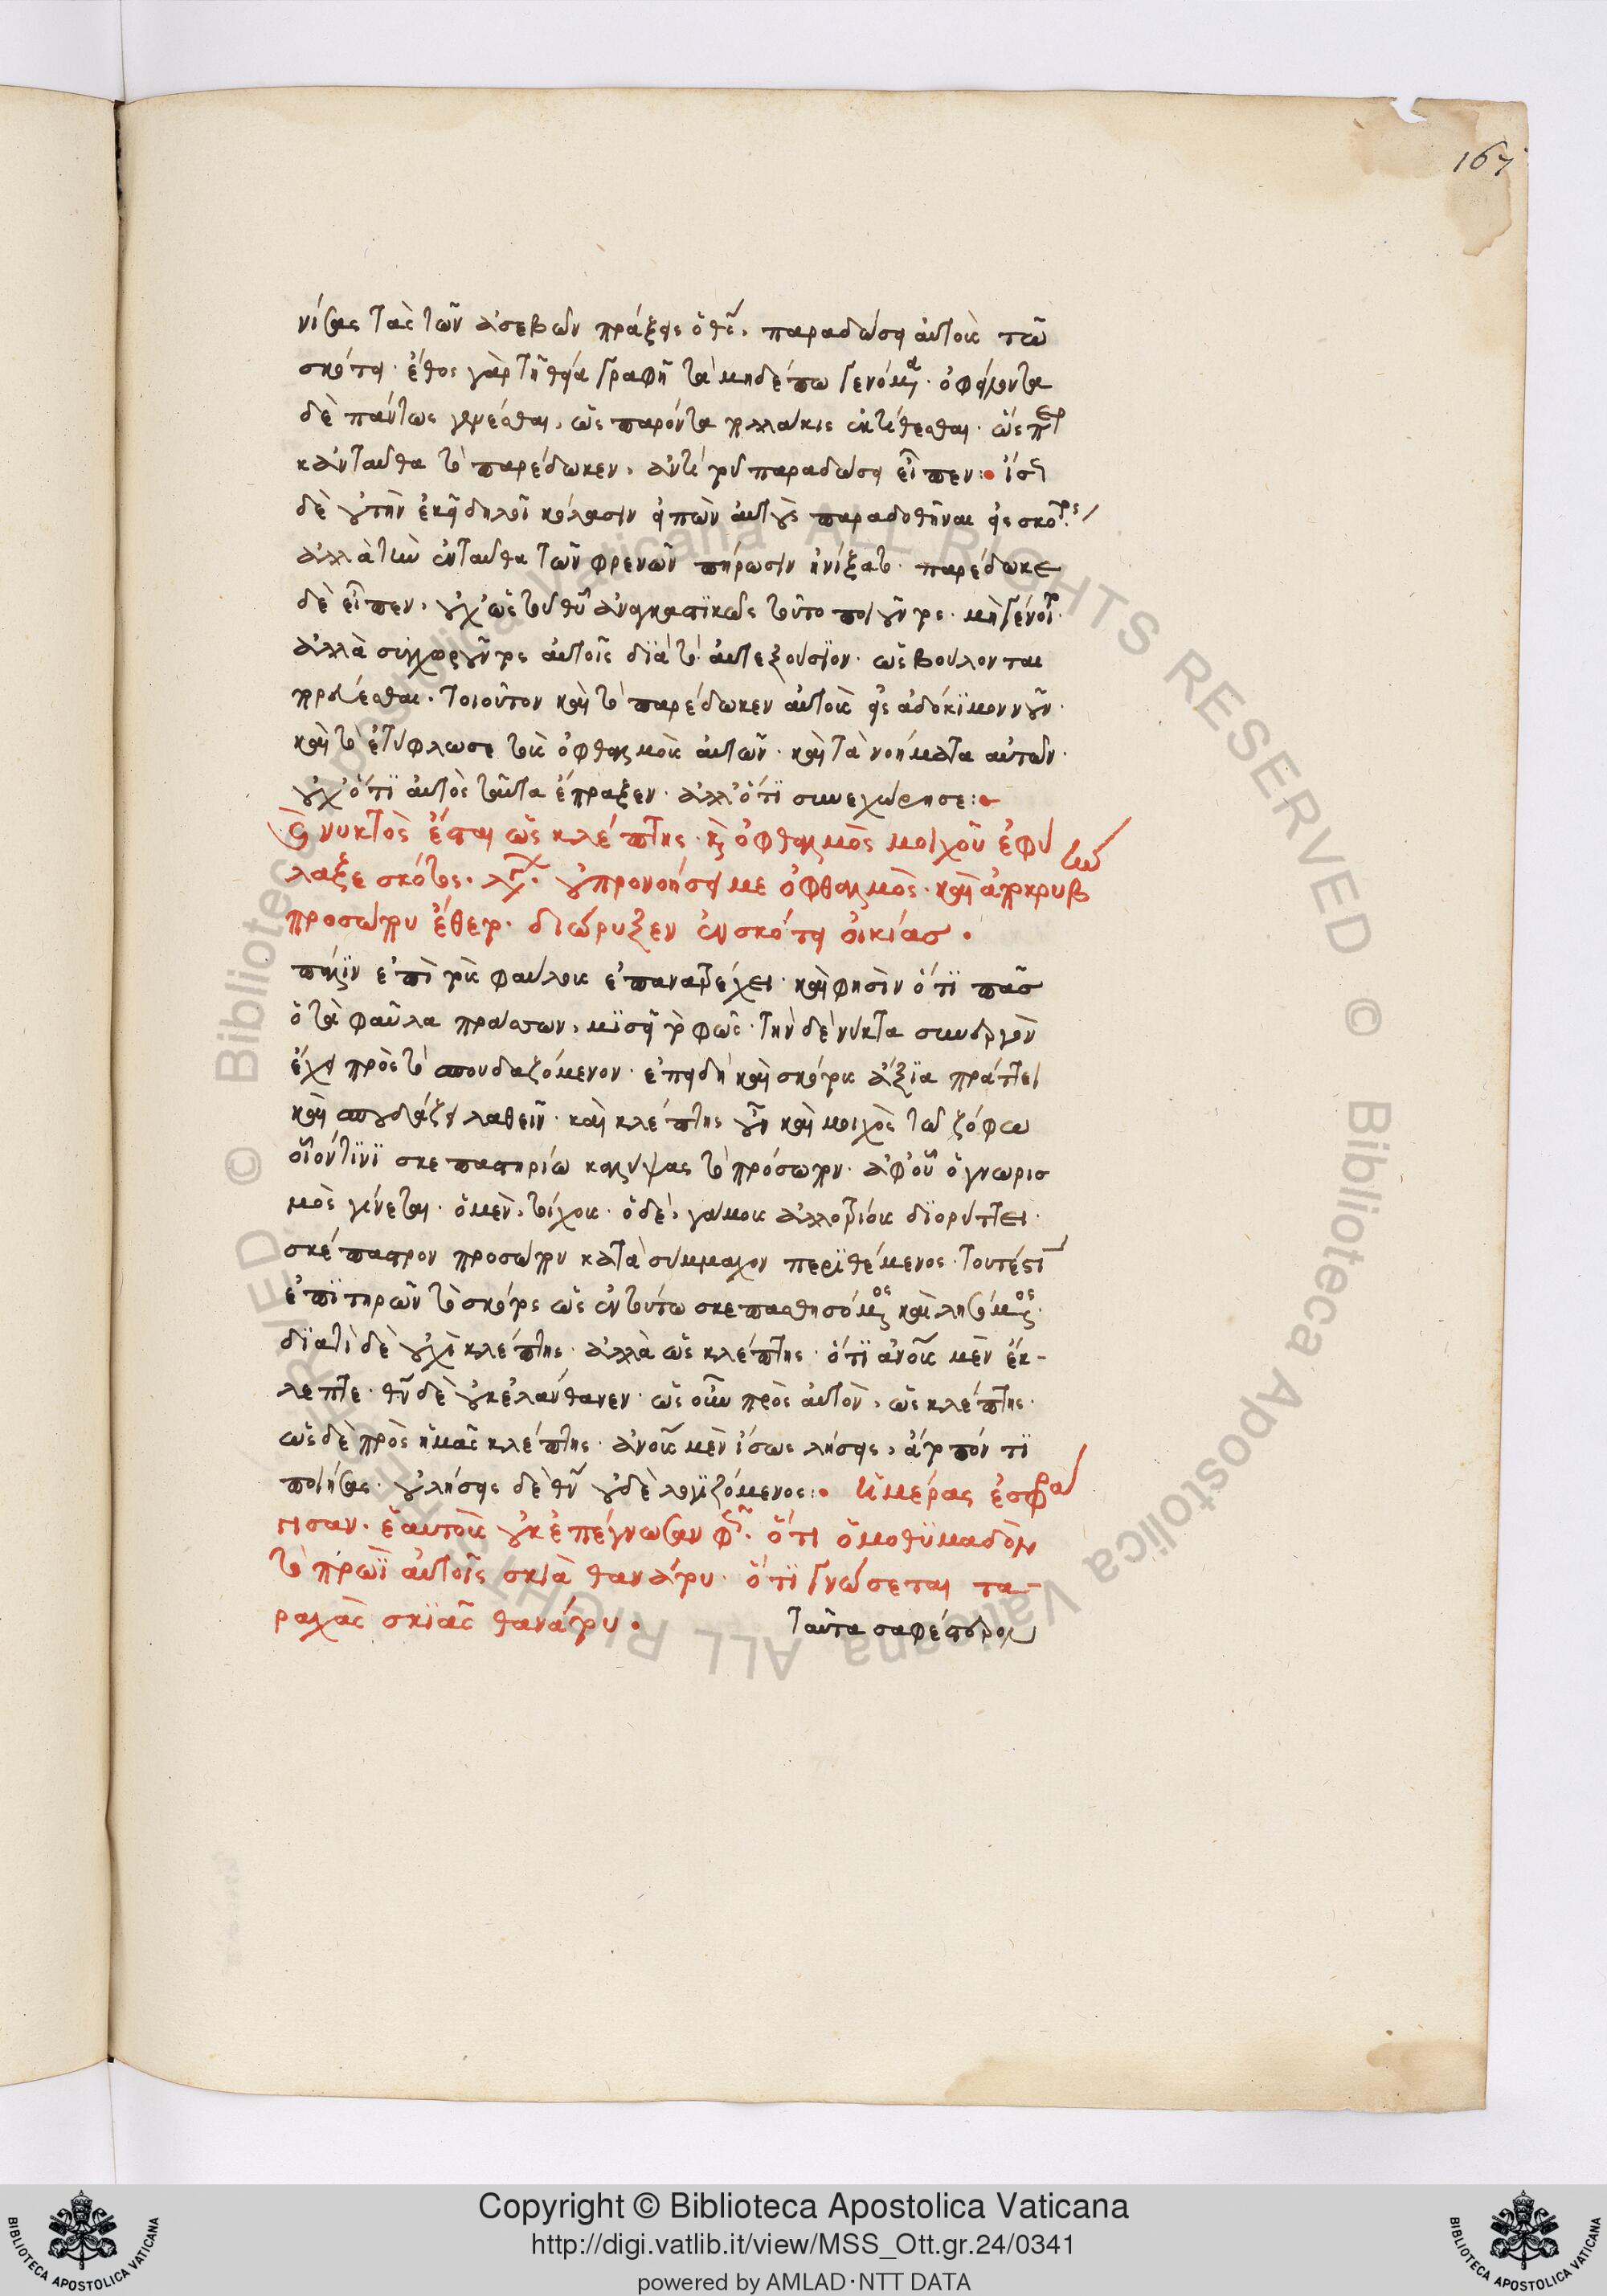 167
νίσας τὰς τῶν ἀσεβῶν πράξεις ὁ θς, παραδώσει αὐτοὺς τῶ
σκότει· ἔθος γὰρ τῆ θεία γραφῆ τὰ μηδέπω γενόμενα· ὀφείλοντα
δὲ πάντως γενέσθαι, ὡς παρόντα πολλάκις ἐκτίθεσθαι· ὥσπερ
κἀνταῦθα τὸ παρέδωκεν, ἀντὶ τοῦ παραδώσει εἶπεν:
δὲ οὐ τὴν ἐκεῖ δηλοῖ κόλασιν εἰπὼν αὐτοὺς παραδοθῆναι εἰς σκότος
ἀλλὰ τὴν ἐνταῦθα τῶν φρενῶν πήρωσιν ἠνίξατο· παρέδωκε
δὲ εἶπεν, οὐχ' ὡς τοῦ θυ ἀναγκαστϊκῶς τοῦτο ποιοῦντος· μὴ γένοιτο·
ἀλλὰ συγχωροῦντος αὐτοῖς διὰ τὸ αὐτεξούσϊον· ὡς βούλονται
προιέσθαι· τοιοῦτον καὶ τὸ παρέδωκεν αὐτοὺς εἰς ἀδόκιμον νοῦν·
καὶ τὸ ἐτύφλωσε τοὺς ὀφθαλμοὺς αὐτῶν· καὶ τὰ νοήματα αὐτῶν·
οὐχ' ὅτϊ αὐτὸς ταῦτα ἔπραξεν· ἀλλ' ὅτϊ συνεχώρησε:
νυκτὸς ἔσται ὡς κλέπτης· κ ὀφθαλμὸς μοιχοῦ ἐφύ
λαξε σκότος· λέγων· οὐ προνοήσει με ὀφθαλμὸς· καὶ ἀποκρυβὴν
προσώπου ἔθετο· διώρυξεν ἐν σκότει οἰκίας.
πάλϊν ἐπὶ τοὺς φαύλους ἐπανατρέχει· καὶ φησὶν ὅτϊ πᾶς
ὁ τὰ φαῦλα πράττων, μϊσεῖ τὸ φῶς· τὴν δὲ νύκτα συνεργὸν
ἔχει πρὸς τὸ σπουδαζόμενον· ἐπειδὴ καὶ σκότους ἄξϊα πράττει
καὶ σπουδάζει λαθεῖν· καὶ κλέπτης οὖν καὶ μοιχὸς τῶ ζόφω
οἷόν τϊνϊ σκεπαστηρίω καλύψας τὸ πρόσωπον· ἀφ' οὗ ὁ γνωρισ
μὸς γίνεται· ὁ μὲν, τοίχους· ὁ δὲ, γάμους ἀλλοτρίους διορύττει·
σκέπαστρον προσώπου κατὰ σύμμαχον περϊθέμενος· τουτέστι
ἐπϊτηρῶν τὸ σκότος ὡς ἐν τούτω σκεπασθησόμενος καὶ λησόμενος·
διατὶ δὲ οὐχὶ κλέπτης· ἀλλὰ ὡς κλέπτης· ὅτϊ ἀνους μὲν ἔκ-
λεπτε· θν δὲ οὐκ ἐλάνθανεν· ὡς οὖν πρὸς αὐτὸν, ὡς κλέπτης·
ὡς δὲ πρὸς ἡμᾶς κλέπτης· ἀνους μὲν ἴσως λήσεις, ἄτοπόν τϊ
ποιήσας· οὐ λήσεις δὲ θν οὐδὲ λογϊζόμενος: ἡμέρας ἐσφρά
γισαν· ἑαυτοὺς οὐκ ἐπέγνωσαν φῶς· ὅτι ὁμοθυμαδὸν
τὸ πρωῒ αὐτοῖς σκιὰ θανάτου· ὅτϊ γνώσεται τα-
ραχὰς σκϊᾶς θανάτου.
ταῦτα σαφέστερον
Copyright © Biblioteca Apostolica Vaticana
http://digi.vatlib.it/view/MSS_Ott.gr.24/0341
powered by AMLAD·NTT DATA